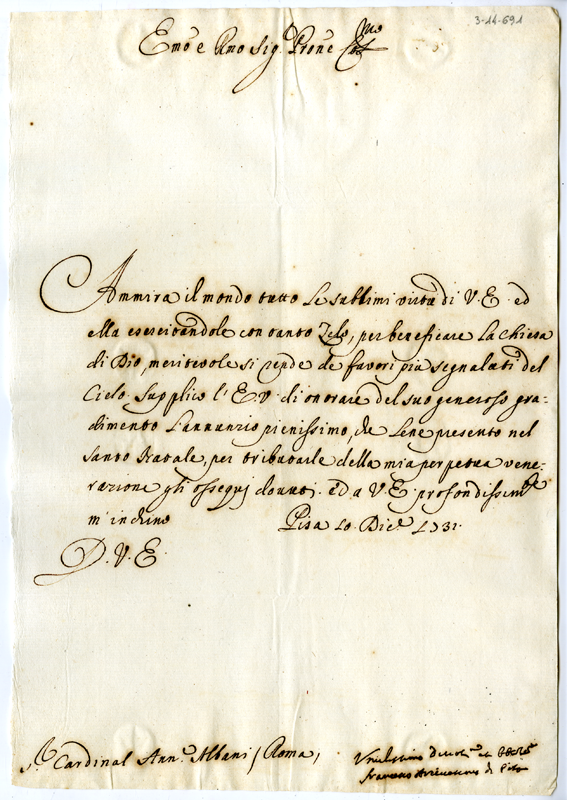 3-14-691
Emo e Rmo Sig. Prone Colmo
Ammira il mondo tutto le sublimi virtù di V. E. ed
ella esercitandole con tanto Zelo, per beneficare la Chiesa
di Dio, meritevole si rende de favori più segnalati del
Cielo. Supplico l'E.V. di onorare del suo generoso gra:
dimento l'annunzio pienissimo, che le ne presento nel
Santo Natale, per tributarle della mia perpetua vene:
razione gli ossequj dovuti. ed a V. E. profondissimte
m'inchino
Pisa 10. Dice. 1731.
D. V. E.
Sr. Cardinal Ann. Albani / Roma /
Umilissimo Devotmo et
Francesco Arcivescovo di Pisa